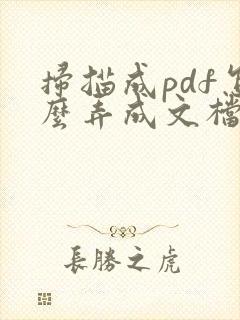 掃描成pdf怎
麼弄成文檔
長勝之虎